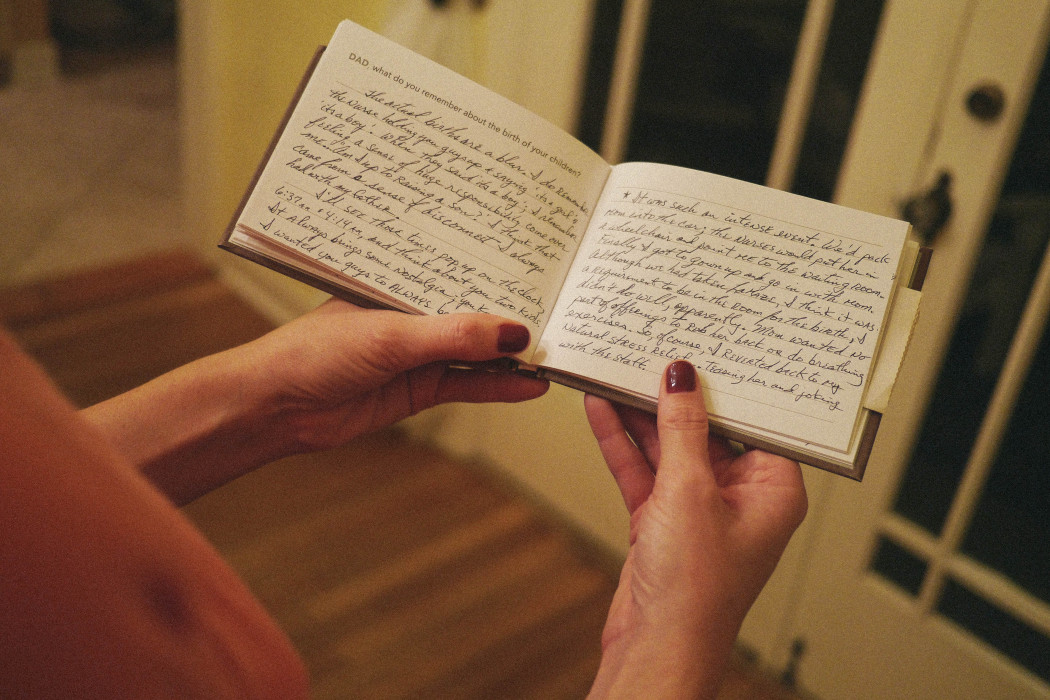 DAD, what do you remember about the birth of your children?
The actual births are a blur. I do remember
the nurse holding you guys up & saying 'its a girl' &
'its a boy'. When they said 'its a boy', I remember
feeling a sense of huge responsibility come over
me — Am I up to raising a son? I think that
came from a sense of disconnect I always
had with my father.
I'll see those times pop up on the clock,
6:37 AM & 4:14 AM, and think about you two kids.
It always brings some nostalgia.
I wanted you guys to ALWAYS
* It was such an intense event. We'd pack
Mom into the car; the nurses would put her in
a wheelchair and point me to the waiting room.
Finally I got to gown up and go in with Mom.
Although we had taken Lamaze, I think it was
a requirement to be in the room for the birth, I
didn't do well, apparently. Mom wanted no
part of offerings to rub her back or do breathing
exercises. So, of course, I reverted back to my
natural stress relief - teasing her and joking
with the staff.